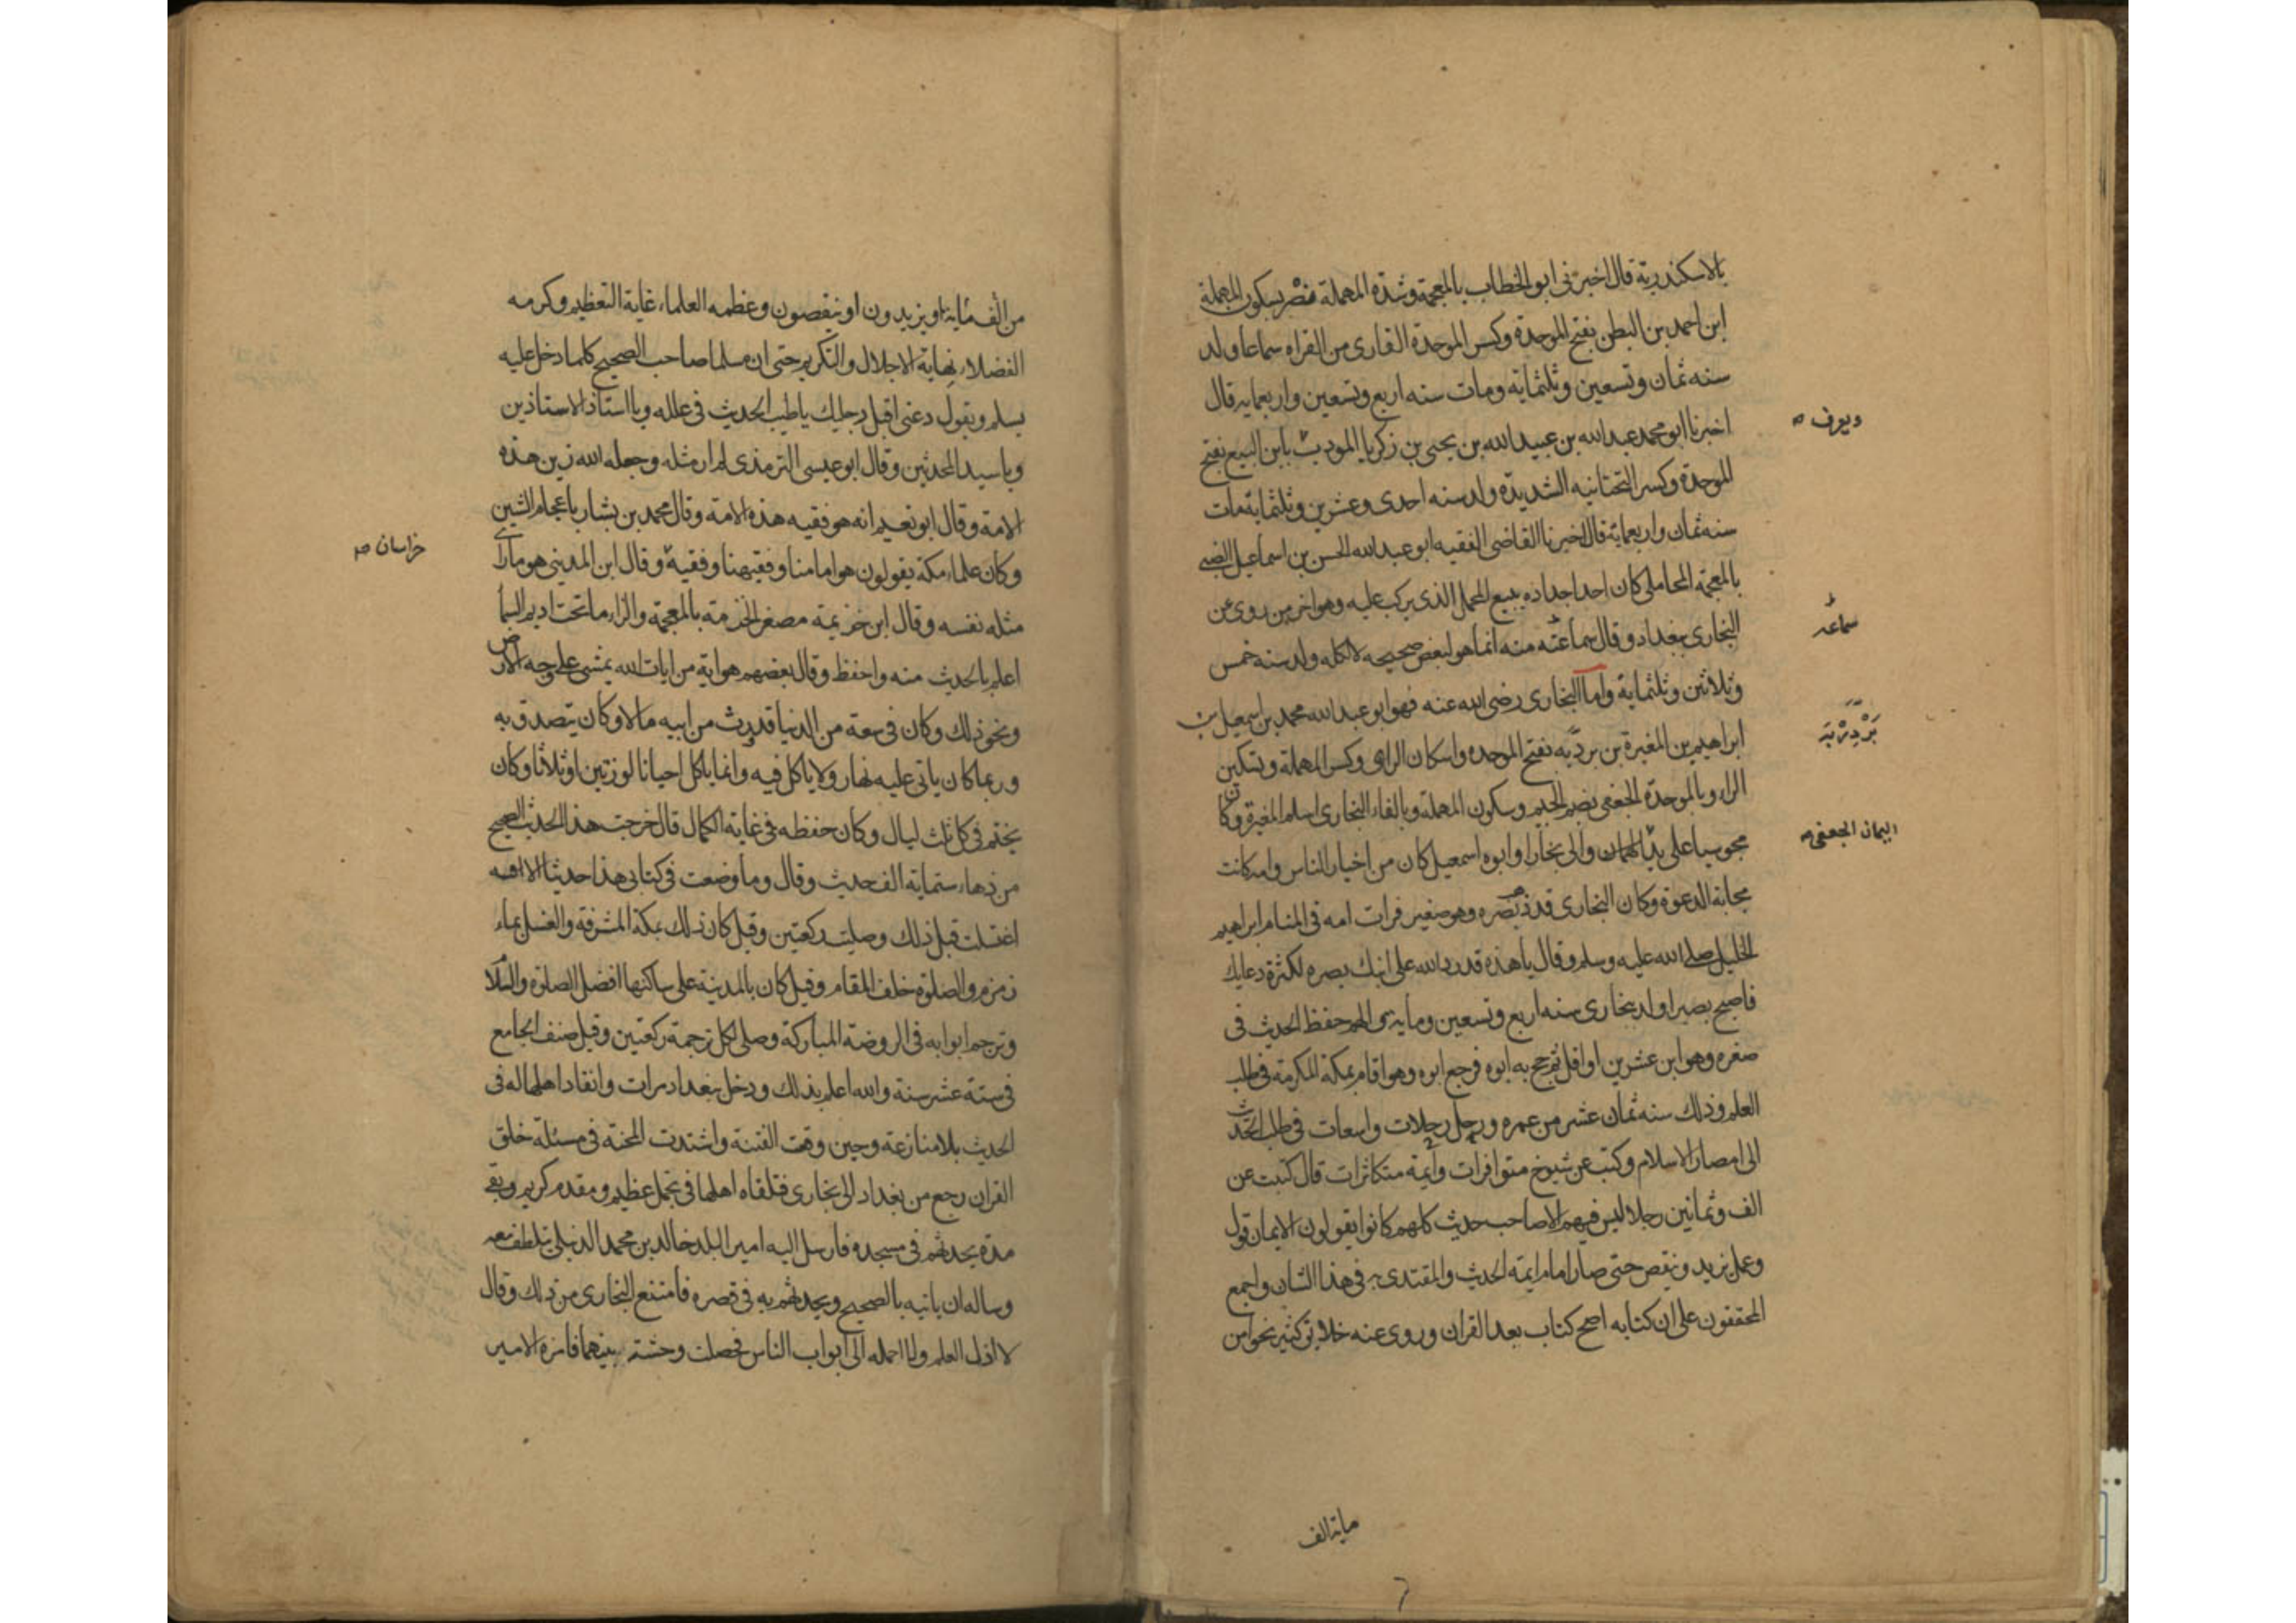 بالاسكندرية قال اخبرني ابو الخطاب بالمعجمة وشدة المهملة نصر بسكون المهملة
ابن احمد بن البطر بفتح الموحدة وكسر الموحدة القارى من القراه سماعا ولد
سنه ثمان وتسعين وثلثمايه ومات سنه اربع وتسعين واربعمايه قال
اخبرنا ابو محمد عبد الله بن عبيد الله بن يحيى بن زكريا المودب بابن البيع بفتح
ويعرف صه
الموحدة وكسر التحتانيه الشديدة ولد سنه احدى وعشرين وثلثماية مات
سنه ثمان واربعماية قال اخبرنا القاضى الفقيه ابو عبد الله الحسن بن اسماعيل الضبى
بالمعجمة المحاملى كان احد اجداده يبيع المحمل الذى يركب عليه وهو اخر من روى عن
البخارى ببغداد وقال سماعته منه انما هو لبعض صحيحه لا لكله ولد سنه خمس
سماعه
وثلاثين وثلثماية واما البخارى رضى الله عنه فهو ابو عبد الله محمد بن اسمعيل بن
ابراهيم بن المغيرة بن بردبه بفتح الموحده واسكان الراى وكسر المهملة وتسكين
بَرْدِزْبَه
الراء وبالموحدة الجعفى بضم الجيم وسكون المهملة وبالفاء البخارى اسلم المغيرة وكان
مجوسيا على يد اليمان والى بخارا وابوه اسمعيل كان من اخيار الناس وامه كانت
اليمان الجعفى صه
مجابة الدعوة وكان البخارى قد ذهب بصره وهو صغير فرات امه فى المنام ابراهيم
الخليل صلى الله عليه وسلم وقال يا هذه قد رد الله على ابنك بصره لكثرة دعايك
فاصبح بصيرا ولد بخارى سنه اربع وتسعين ومايه الهم حفظ الحديث فى
صغره وهو ابن عشرين او اقل ثم حج به ابوه فرجع ابوه وهو اقام بمكة المكرمة فى طلب
العلم وذلك سنه ثمان عشر من عمره ورحل رحلات واسعات فى طلب الحديث
الى امصار الاسلام وكتب عن شيوخ متوافرات وأيمة متكاثرات قال كتبت عن
الف وثمانين رجلا ليس فيهم الا صاحب حديث كلهم كانوا يقولون الايمان قول
وعمل يزيد وينقص حتى صار امام ايمة الحديث والمقتدى به فى هذا الشان واجمع
المحققون على ان كتابه اصح كتاب بعد القران وروى عنه خلايق كثير نحوا من
ماية الف
من ألف ماية او يزيدون او ينقصون وعظمه العلماء غاية التعظيم وكرمه
الفضلاء نهاية الاجلال والتكريم حتى ان مسلما صاحب الصحيح كلما دخل عليه
يسلم ويقول دعنى اقبل رجليك يا طيب الحديث فى علله ويا استاذ الاستاذين
ويا سيد المحدثين وقال ابو عيسى الترمذى لم ار مثله وجعله الله زين هذه
الامة وقال ابو نعيم انه هو فقيه هذه الامة وقال محمد بن بشار باعجام الشين
وكان علماء مكة يقولون هو امامنا وفقيهنا وفقيه وقال ابن المدينى هو ما راى
خراسان صه
مثله نفسه وقال ابن خزيمة مصغر الخزمة بالمعجمة والزاء ما تحت اديم السما
اعلم بالحديث منه واحفظ وقال بعضهم هو اية من ايات الله يمشى على وجه الارض
ونحو ذلك وكان فى سعة من الدنيا قد ورث من ابيه مالا وكان يتصدق به
وربما كان ياتى عليه نهار ولا ياكل فيه وانما ياكل احيانا لوزتين او ثلاثا وكان
يختم فى كل ثلث ليال وكان حفظه فى غاية الكمال قال خرجت هذا الحديث الصحيح
من زهاء ستماية الف حديث وقال وما وضعت فى كتابى هذا حديثا الا
اغتسلت قبل ذلك وصليت ركعتين وقيل كان ذلك بمكة المشرفة والغسل بماء
زمزم والصلوة خلف المقام وقيل كان بالمدينة على ساكنها افضل الصلوة والسلام
وترجم ابوابه فى الروضة المباركة وصلى لكل ترجمة ركعتين وقيل صنف الجامع
فى ستة عشر سنة والله اعلم بذلك ودخل بغداد مرات وانقاد اهلها له فى
الحديث بلا منازعة وحين وقعت الفتنة واشتدت المحنة فى مسئلة خلق
القران رجع من بغداد الى بخارى فتلقاه اهلها فى تجمل عظيم ومقدم كريم وبقى
مدة يحدثهم فى مسجده فارسل اليه امير البلد خالد بن محمد الذهلى يتلطف معه
وساله ان ياتيه بالصحيح ويحدثهم به فى قصره فامتنع البخارى من ذلك وقال
لا اذل العلم ولا احمله الى ابواب الناس فحصلت وحشة بينهما فامره الامير